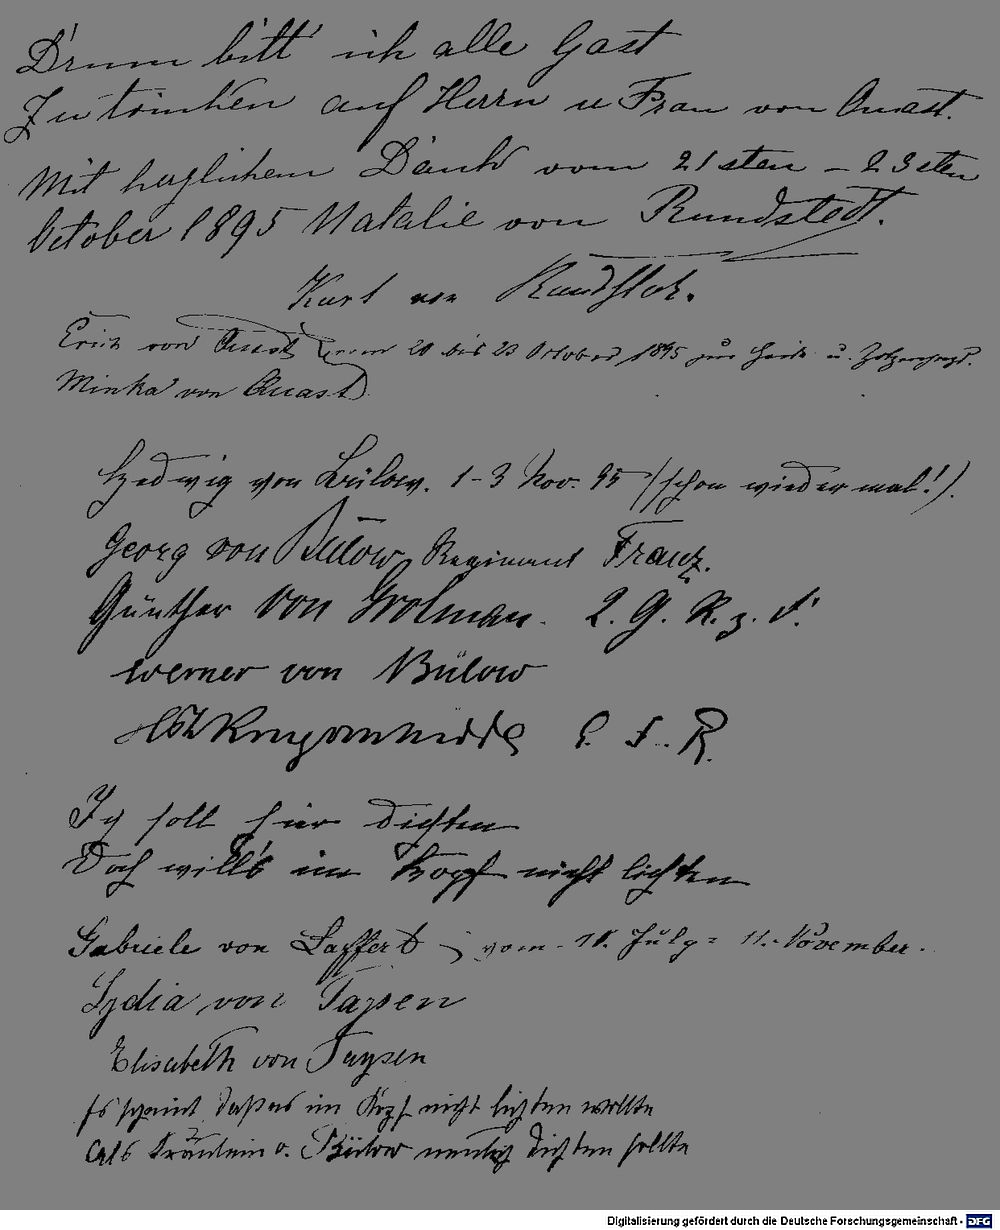 D'rum bitt' ich alle Gast
Zu trinken auf Herrn u Frau von Quast.
Mit herzlichem Dank vom 21sten – 23sten
October 1895 Natalie von Rundstedt.
Kurt von Rundstedt.
Erich von Quast vom 20 bis 23 October 1895 zur u.
Minka von Quast
Hedwig von Bülow. 1–3 Nov. 95 (schon wieder mal!).
Georg von Bülow, Regiment Franz.
Günther von Grolman. 2. G. R. z. F.
Werner von Bülow
Ich soll hier dichten
Doch will's im Kopf nicht lichten
Gabriele von Laffert vom 11. November.
Lydia von Taysen
Elisabeth von Taysen
Es scheint, daß es im Kopf nicht lichten wollte
Als Fräulein v. Bülow neulich dichten sollte
Digitalisierung gefördert durch die Deutsche Forschungsgemeinschaft - DFG